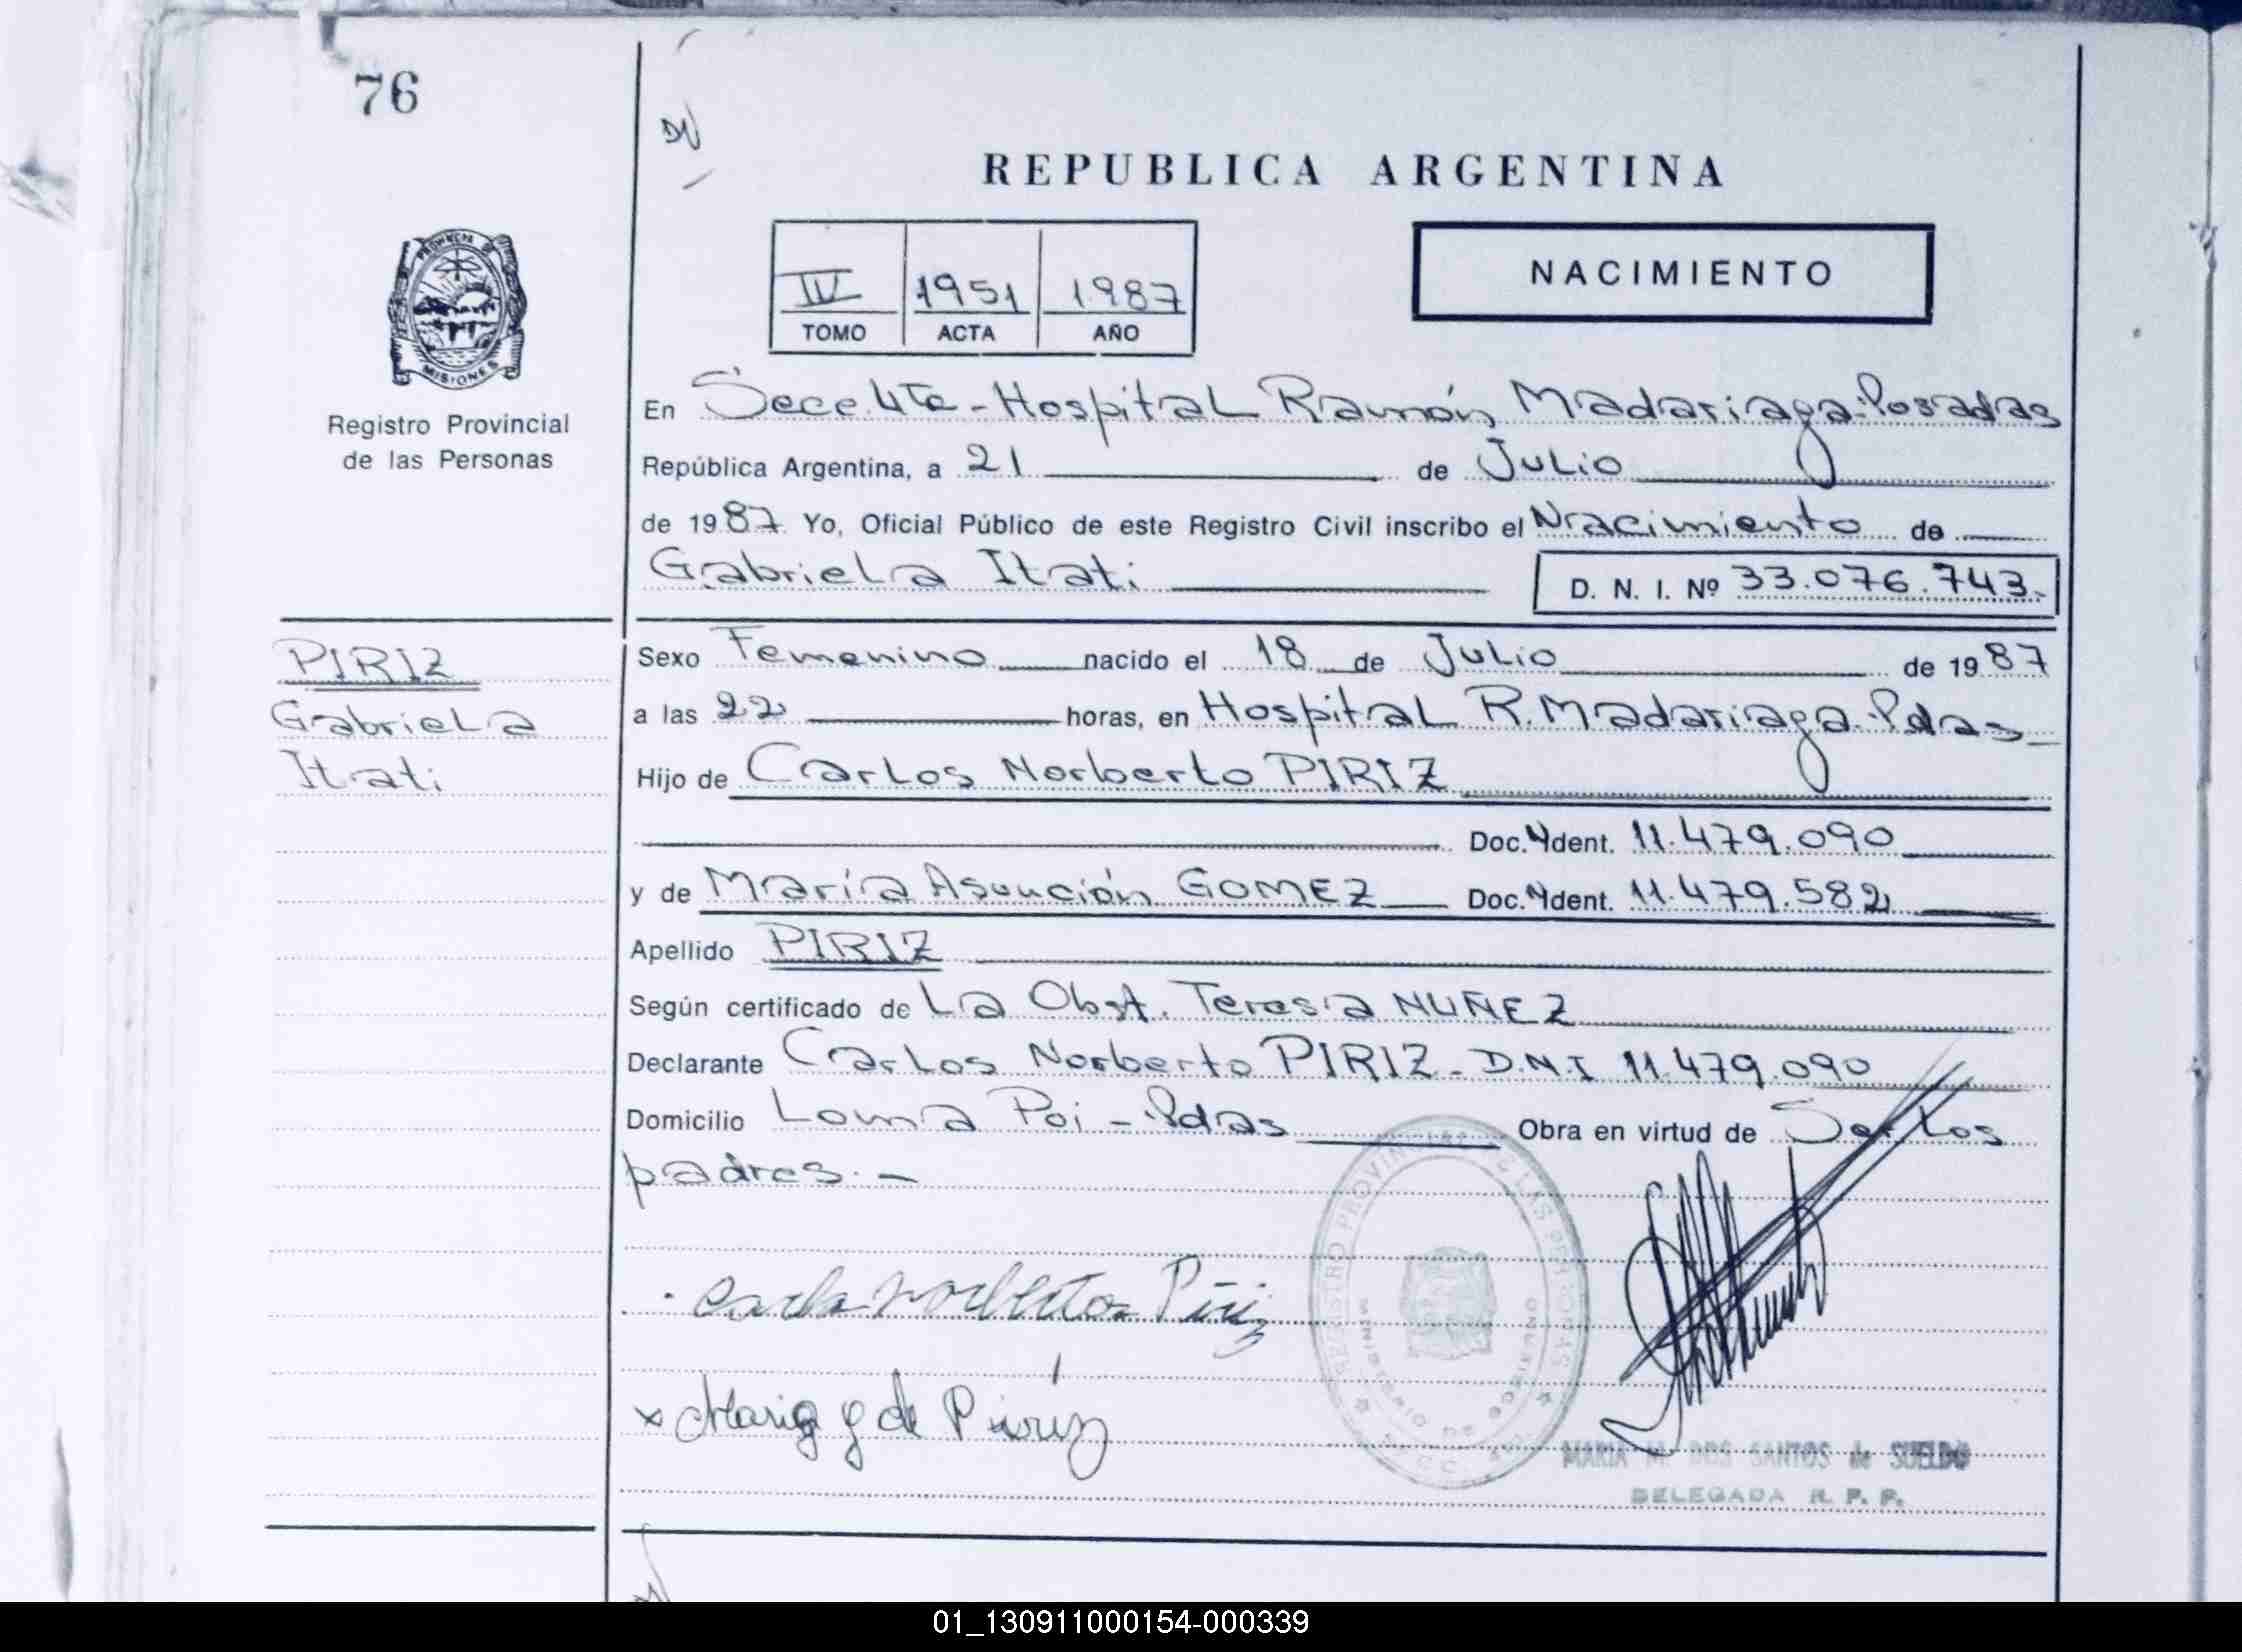 76
REPUBLICA ARGENTINA
PROVINCIA DE
MISIONES
Registro Provincial
de las Personas
IV 1951 1987
TOMO ACTA AÑO
NACIMIENTO
En Hospital Ramón Madariaga-Posadas
República Argentina, a 21 de Julio
de 1987 Yo, Oficial Público de este Registro Civil inscribo el Nacimiento de
Gabriela Itati
D. N. I. Nº 33.076.743.-
PIRIZ
Gabriela
Itati
Sexo Femenino nacido el 18 de Julio de 1987
a las 22 horas, en Hospital R. Madariaga-Pdas
Hijo de Carlos Norberto PIRIZ
Doc. Ydent. 11.479.090
y de María Asunción GOMEZ Doc. Ydent. 11.479.582
Apellido PIRIZ
Según certificado de La Obst. Teresa NUÑEZ
Declarante Carlos Norberto PIRIZ - D.N.I 11.479.090
Domicilio Loma Poi - Pdas Obra en virtud de Ser los
padres.-
Carlos Norberto Piriz
x Maria g de Piriz
REGISTRO PROVINCIAL DE LAS PERSONAS
MINISTERIO DE GOBIERNO
MARIA M. DOS SANTOS de SUELDO
DELEGADA R. P. P.
01_130911000154-000339